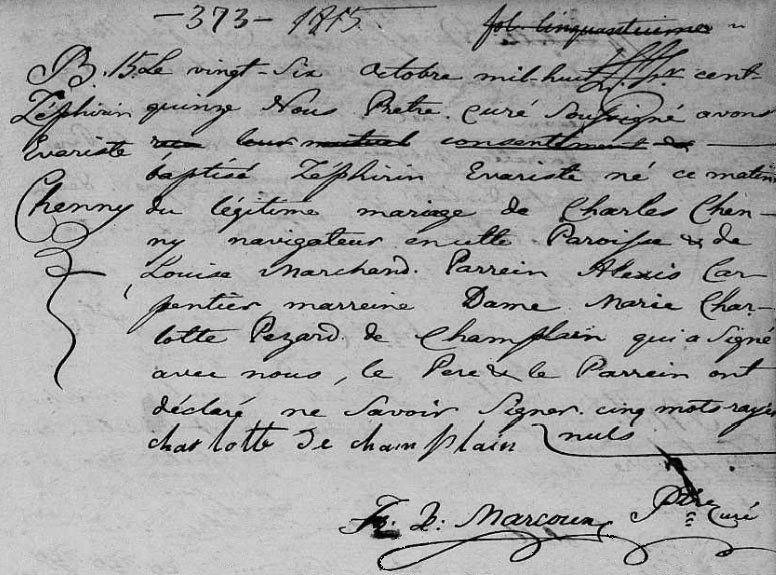 -373- 1815 fol. cinquantieme
B. 15. Le vingt-Six octobre mil-huit cent-
Zéphirin quinze Nous Pretre curé Soussigné avons
Evariste recu leur mutuel consentement &
baptisé Zéphirin Evariste né ce matin
Chenny du légitime mariage de Charles Chen-
ny navigateur en cette Paroisse & de
Louise Marchand. Parrein Alexis Car-
pentier, marreine Dame Marie Char-
lotte Pezard de Champlain qui a Signé
avec nous, le Pere & le Parrein ont
déclaré ne Savoir Signer. cinq mots rayés
charlotte De champlain nuls
Marcoux Ptre Curé